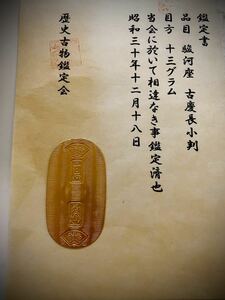 鑑定書
品目 駿河座 古慶長小判
目方 十三グラム
当会に於いて相違なき事鑑定済也
昭和三十年十二月十八日
歴史古物鑑定会